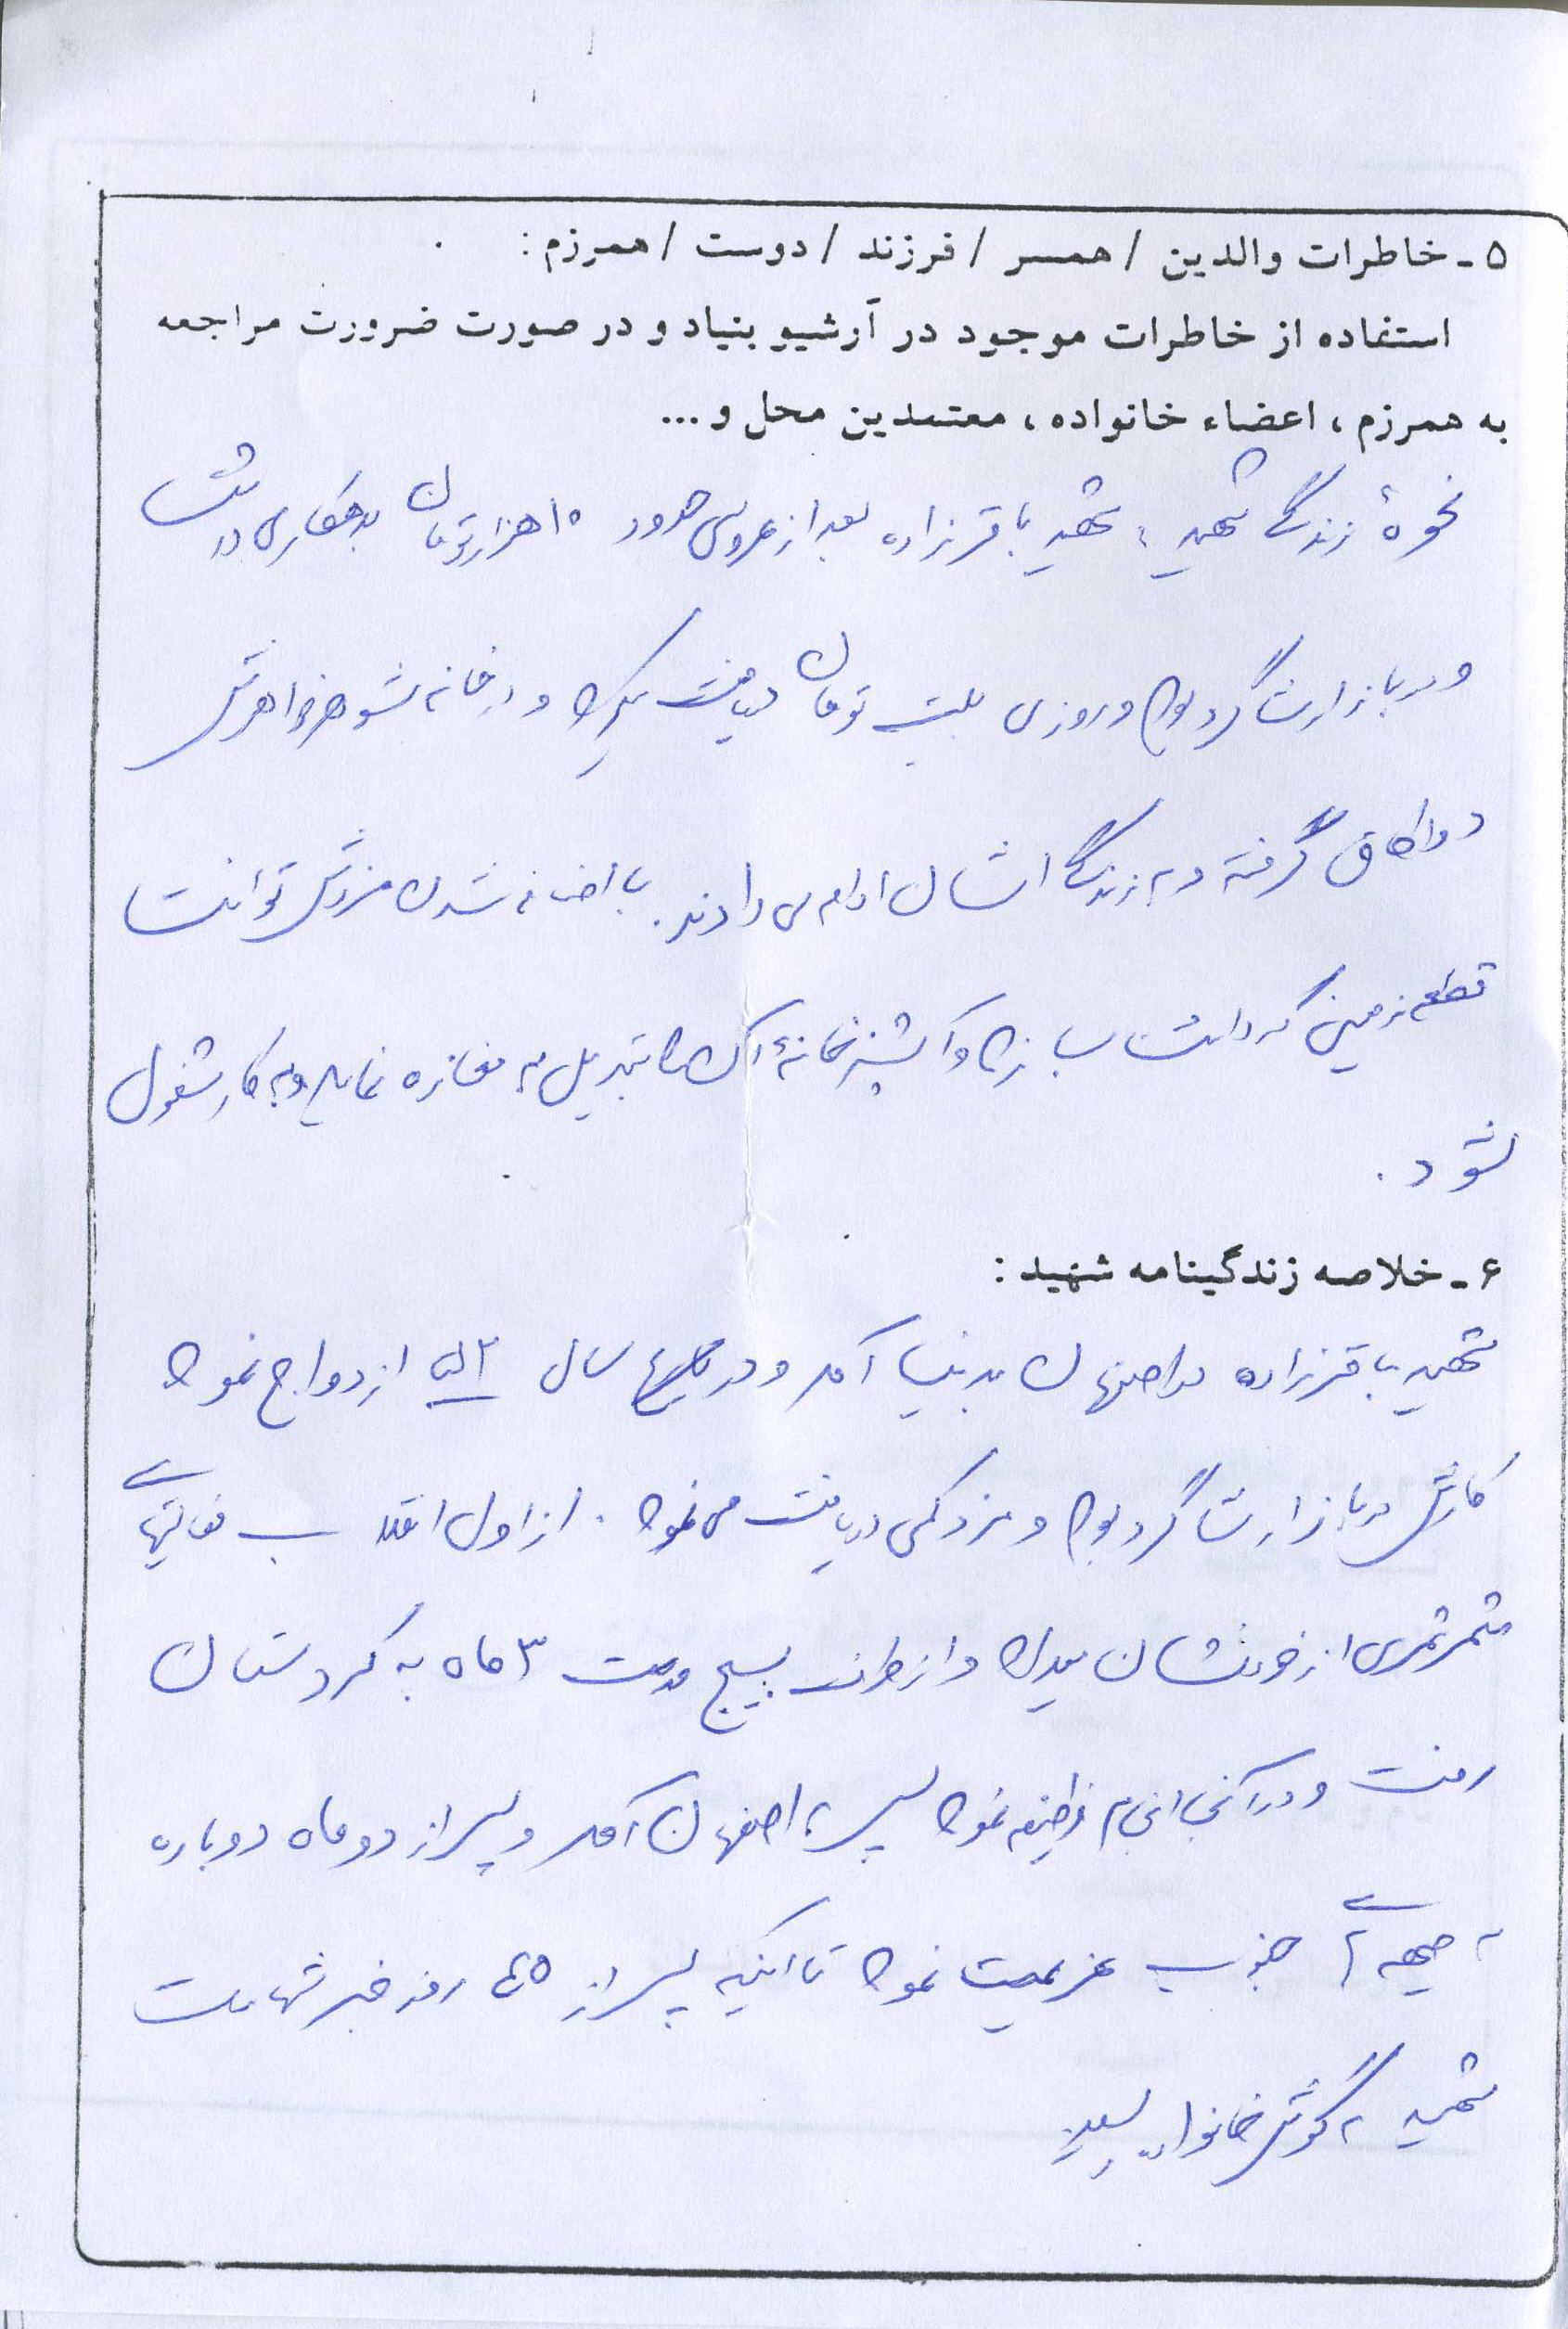 ۵ ـ خاطرات والدین / همسر / فرزند / دوست / همرزم :
استفاده از خاطرات موجود در آرشیو بنیاد و در صورت ضرورت مراجعه
به همرزم ، اعضاء خانواده ، معتمدین محل و ...
نحوهٔ زندگی شهید : شهید باقرزاده بعد از عروسی حدود ۱۰ هزار تومان بدهکاری داشت
و در بازار شاگرد بود و روزی بیست تومان دریافت میکرد و در خانه شوهر خواهرش
دو اطاق گرفته و به زندگی اشان ادامه می دادند . با اضافه شدن مزدش توانست
قطعه زمینی که داشت بسازد و آشپزخانهٔ آن را تبدیل به مغازه نماید و به کار مشغول
شود .
۶ ـ خلاصه زندگینامه شهید :
شهید باقرزاده در اصفهان بدنیا آمد و در سال ازدواج نمود
کارش در بازار شاگرد بود و مزد کمی دریافت می نمود . از اول انقلاب فعالیتهای
مثمرثمری از خودنشان میداد و از طرف بسیج مدت ۳ ماه به کردستان
رفت و در آنجا انجام وظیفه نمود سپس به اصفهان آمد و پس از دو ماه دوباره
به جبهه های جنوب عزیمت نمود تا اینکه پس از روز خبر شهادت
شهید به گوش خانواده رسید